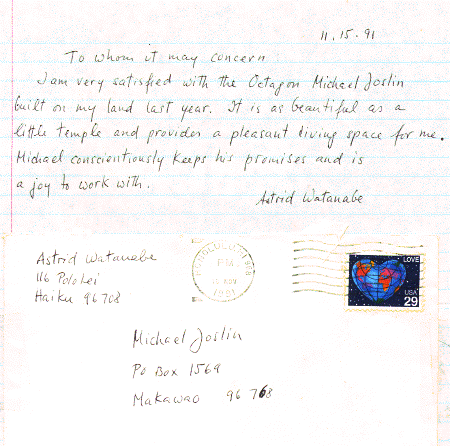 11.15.91
To whom it may concern:
I am very satisfied with the Octagon Michael Joslin
built on my land last year. It is as beautiful as a
little temple and provides a pleasant living space for me.
Michael conscientiously keeps his promises and is
a joy to work with.
Astrid Watanabe
Astrid Watanabe
116 Polohei
Haiku 96708
HONOLULU HI
PM
NOV
1991
LOVE
USA
29
Michael Joslin
PO Box 1569
Makawao 96768